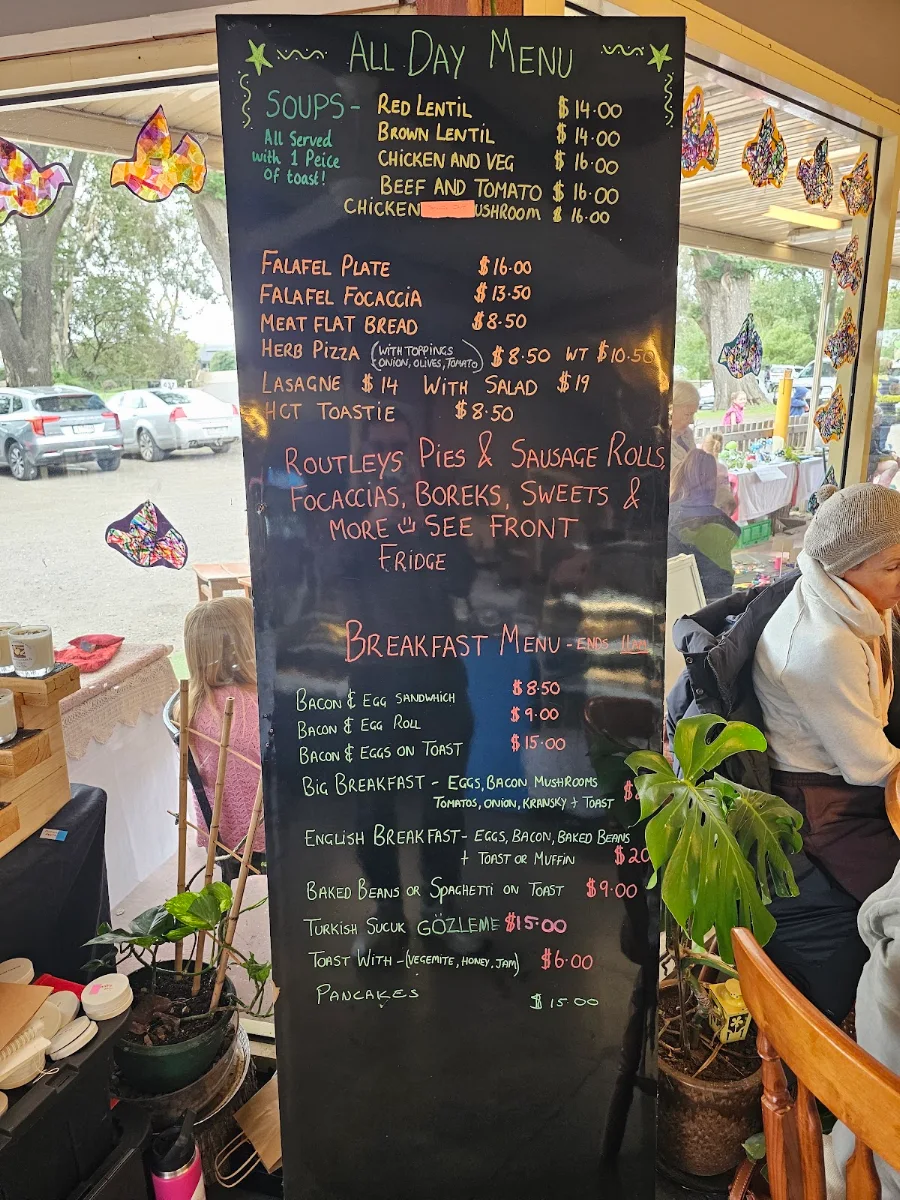 ALL DAY MENU
SOUPS - RED LENTIL $14.00
All Served BROWN LENTIL $14.00
with 1 Peice CHICKEN AND VEG $16.00
Of toast! BEEF AND TOMATO $16.00
CHICKEN USHROOM $16.00
FALAFEL PLATE $16.00
FALAFEL FOCACCIA $13.50
MEAT FLAT BREAD $8.50
HERB PIZZA (WITH TOPPINGS ONION, OLIVES, TOMATO) $8.50 WT $10.50
LASAGNE $14 WITH SALAD $19
HOT TOASTIE $8.50
ROUTLEYS PIES & SAUSAGE ROLLS,
FOCACCIAS, BOREKS, SWEETS &
MORE SEE FRONT
FRIDGE
BREAKFAST MENU - ENDS 11am
BACON & EGG SANDWHICH $8.50
BACON & EGG ROLL $9.00
BACON & EGGS ON TOAST $15.00
BIG BREAKFAST - EGGS, BACON MUSHROOMS
TOMATOS, ONION, KRANSKY + TOAST
ENGLISH BREAKFAST - EGGS, BACON, BAKED BEANS
+ TOAST OR MUFFIN $20
BAKED BEANS OR SPAGHETTI ON TOAST $9.00
TURKISH SUCUK GÖZLEME $15.00
TOAST WITH - (VEGEMITE, HONEY, JAM) $6.00
PANCAKES $15.00